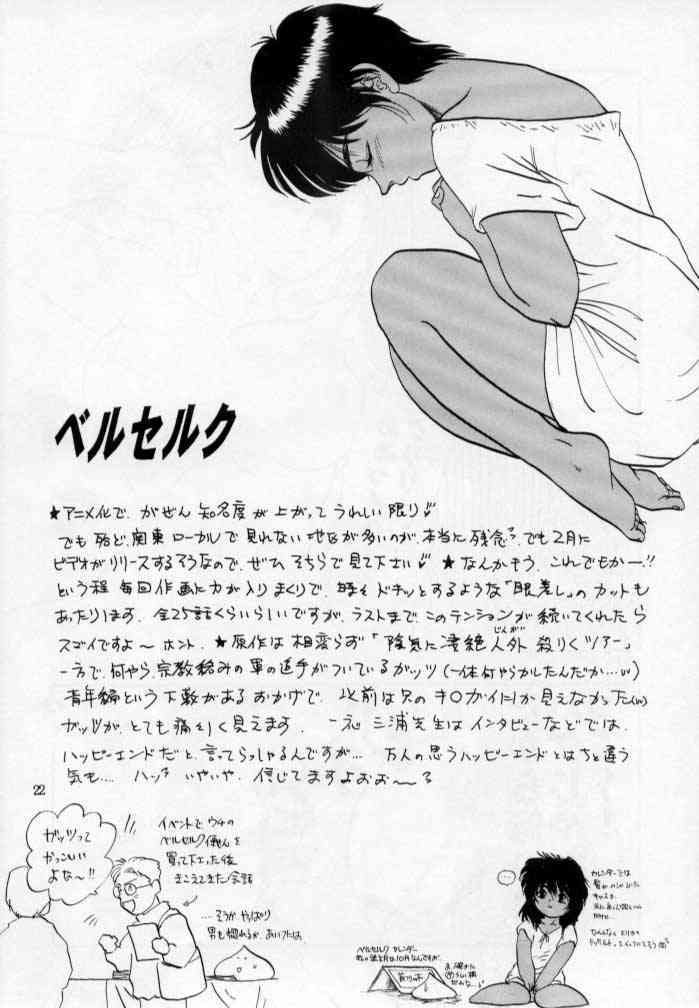 ベルセルク
★アニメ化で、がぜん 知名度が上がって うれしい限り
でも 殆ど、関東ローカルで見れない 地区が多いのが、本当に残念 でも2月に
ビデオがリリースするそうなので、ぜひ そちらで見て下さい ★なんかもう、これでもかー!!
という程 毎回作画に力が入りまくりで、時々 ドキッとするような「眼差し」のカットも
あったります。全25話くらいらしいですが、ラストまで、このテンションが 続いてくれたら
スゴイですよ〜 ホント。★原作は相変らず「陰気に凄絶人外 殺りくツアー」
じんがい
一方で、何やら、宗教絡みの軍の追手がついているガッツ(一体何やらかしたんだか…
青年編という下敷があるおかげで、以前は只のキ○ガイにしか見えなかった
ガッツが、とても痛々しく見えます。一応 三浦先生は インタビューなどでは、
ハッピーエンドだと、言ってらっしゃるんですが… 万人の思うハッピーエンドとはちと違う
気も…. ハッ いやいや、信じてますよおぉ〜る
22
ガッツって
かっこいい
よな〜!!
イベントで ウチの
ベルセルク本を
買って下さった後
きこえてきた会話
…そうか やっぱり
男も惚れるか、あいつは、
ベルセルク カレンダー
…
カレンダーでは